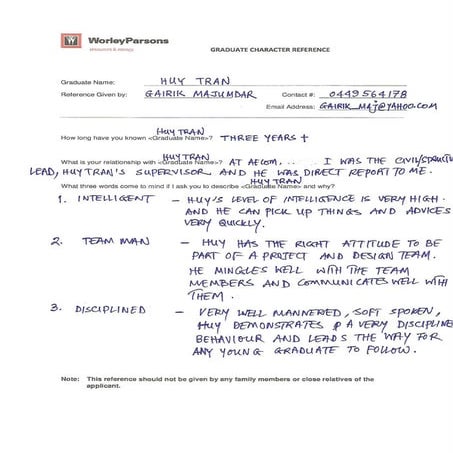 WorleyParsons
resources & energy
GRADUATE CHARACTER REFERENCE
Graduate Name: HUY TRAN
Reference Given by: GAIRIK MAJUMDAR Contact #: 0449564178
Email Address: GAIRIK_MAJ@YAHOO.COM
HUY TRAN
How long have you known <Graduate Name>? THREE YEARS +
HUY TRAN
What is your relationship with <Graduate Name>? AT AECOM... I WAS THE CIVIL/STRUCTURE
LEAD, HUY TRAN'S SUPERVISOR AND HE WAS DIRECT REPORT TO ME.
HUY TRAN
What three words come to mind if I ask you to describe <Graduate Name> and why?
1. INTELLIGENT - HUY'S LEVEL OF INTELLIGENCE IS VERY HIGH.
AND HE CAN PICK UP THINGS AND ADVICES
VERY QUICKLY.
2. TEAM MAN - HUY HAS THE RIGHT ATTITUDE TO BE
PART OF A PROJECT AND DESIGN TEAM.
HE MINGLES WELL WITH THE TEAM
MEMBERS AND COMMUNICATES WELL WITH
THEM.
3. DISCIPLINED - VERY WELL MANNERED, SOFT SPOKEN,
HUY DEMONSTRATES A VERY DISCIPLINE
BEHAVIOUR AND LEADS THE WAY FOR
ANY YOUNG GRADUATE TO FOLLOW.
Note: This reference should not be given by any family members or close relatives of the
applicant.